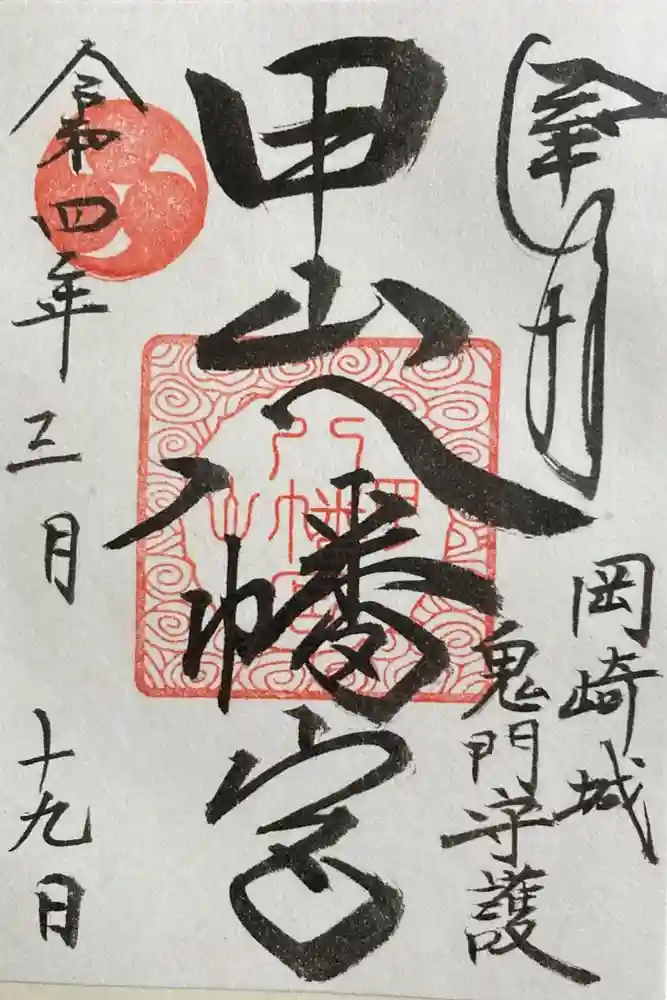 奉拝
岡崎城
鬼門守護
甲山八幡宮
甲山
八幡宮
令和四年三月十九日